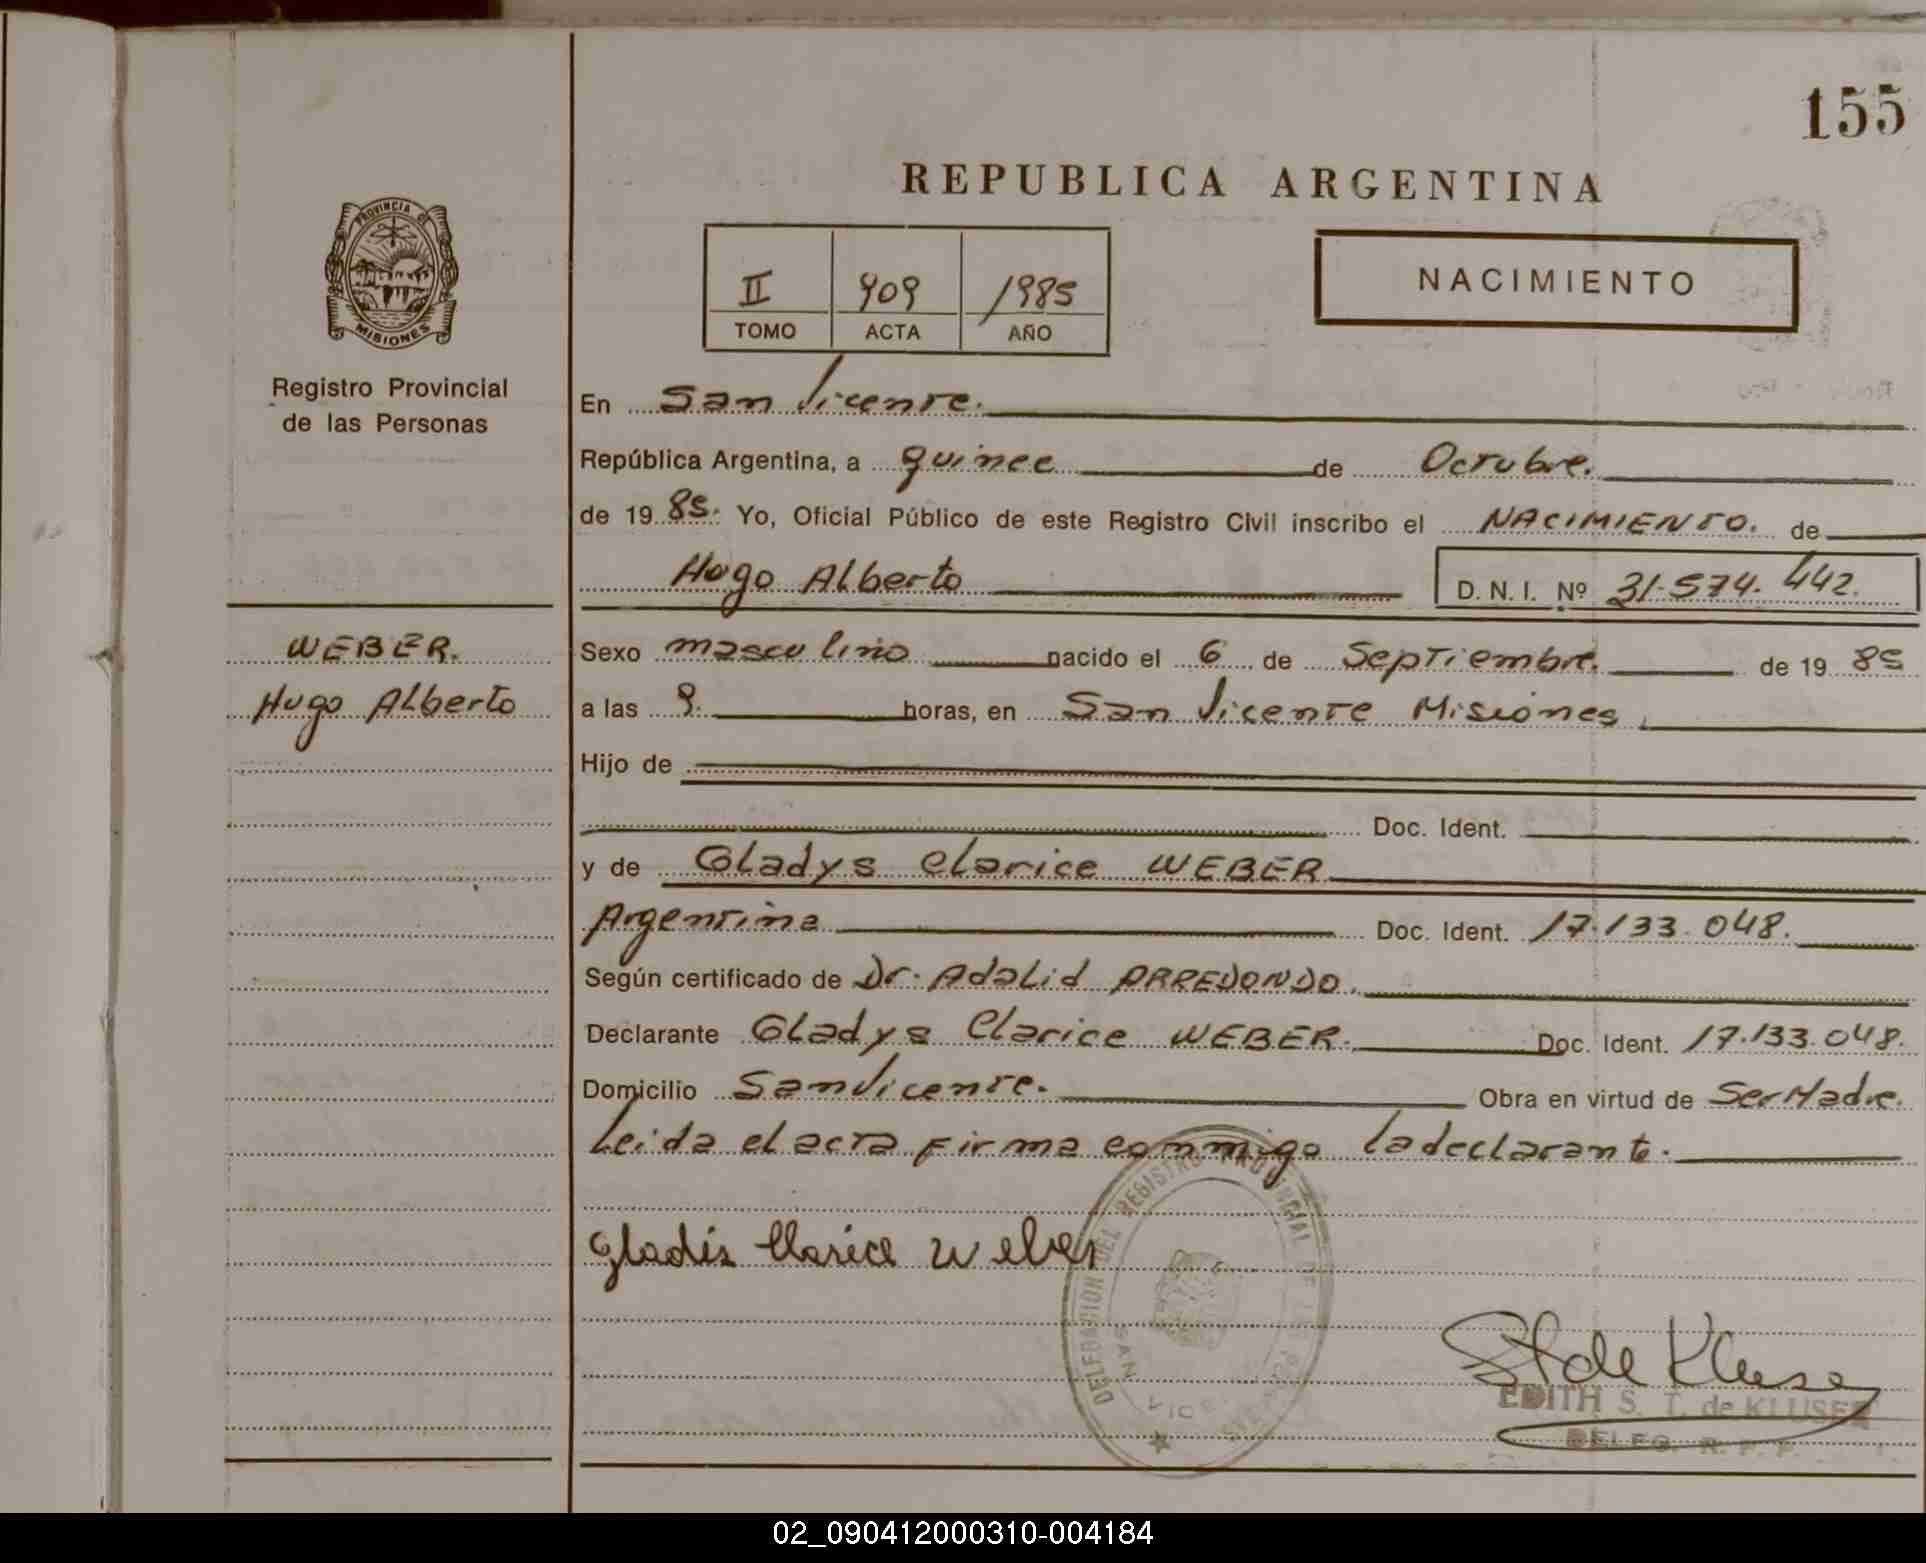 155
REPUBLICA ARGENTINA
II 909 1985
TOMO ACTA AÑO
NACIMIENTO
PROVINCIA DE
MISIONES
Registro Provincial
de las Personas
WEBER.
Hugo Alberto
En San Vicente.
República Argentina, a quince de Octubre.
de 19 85. Yo, Oficial Público de este Registro Civil inscribo el NACIMIENTO. de
Hugo Alberto D. N. I. Nº 31.574.442.
Sexo masculino nacido el 6 de Septiembre. de 19 85
a las 9. horas, en San Vicente Misiones.
Hijo de
Doc. Ident.
y de Gladys Clarice WEBER
Argentina Doc. Ident. 17.133.048.
Según certificado de Dr. Adalid ARREDONDO.
Declarante Gladys Clarice WEBER. Doc. Ident. 17.133.048.
Domicilio San Vicente. Obra en virtud de Ser Madre.
Leida el acta firma commigo la declarante.
Gladis Clarice Weber
DELEGACION DEL REGISTRO PROVINCIAL DE LAS PERSONAS
SAN VICENTE
EDITH S. T. de KLUSER
DELEG. R. P. P.
02_090412000310-004184